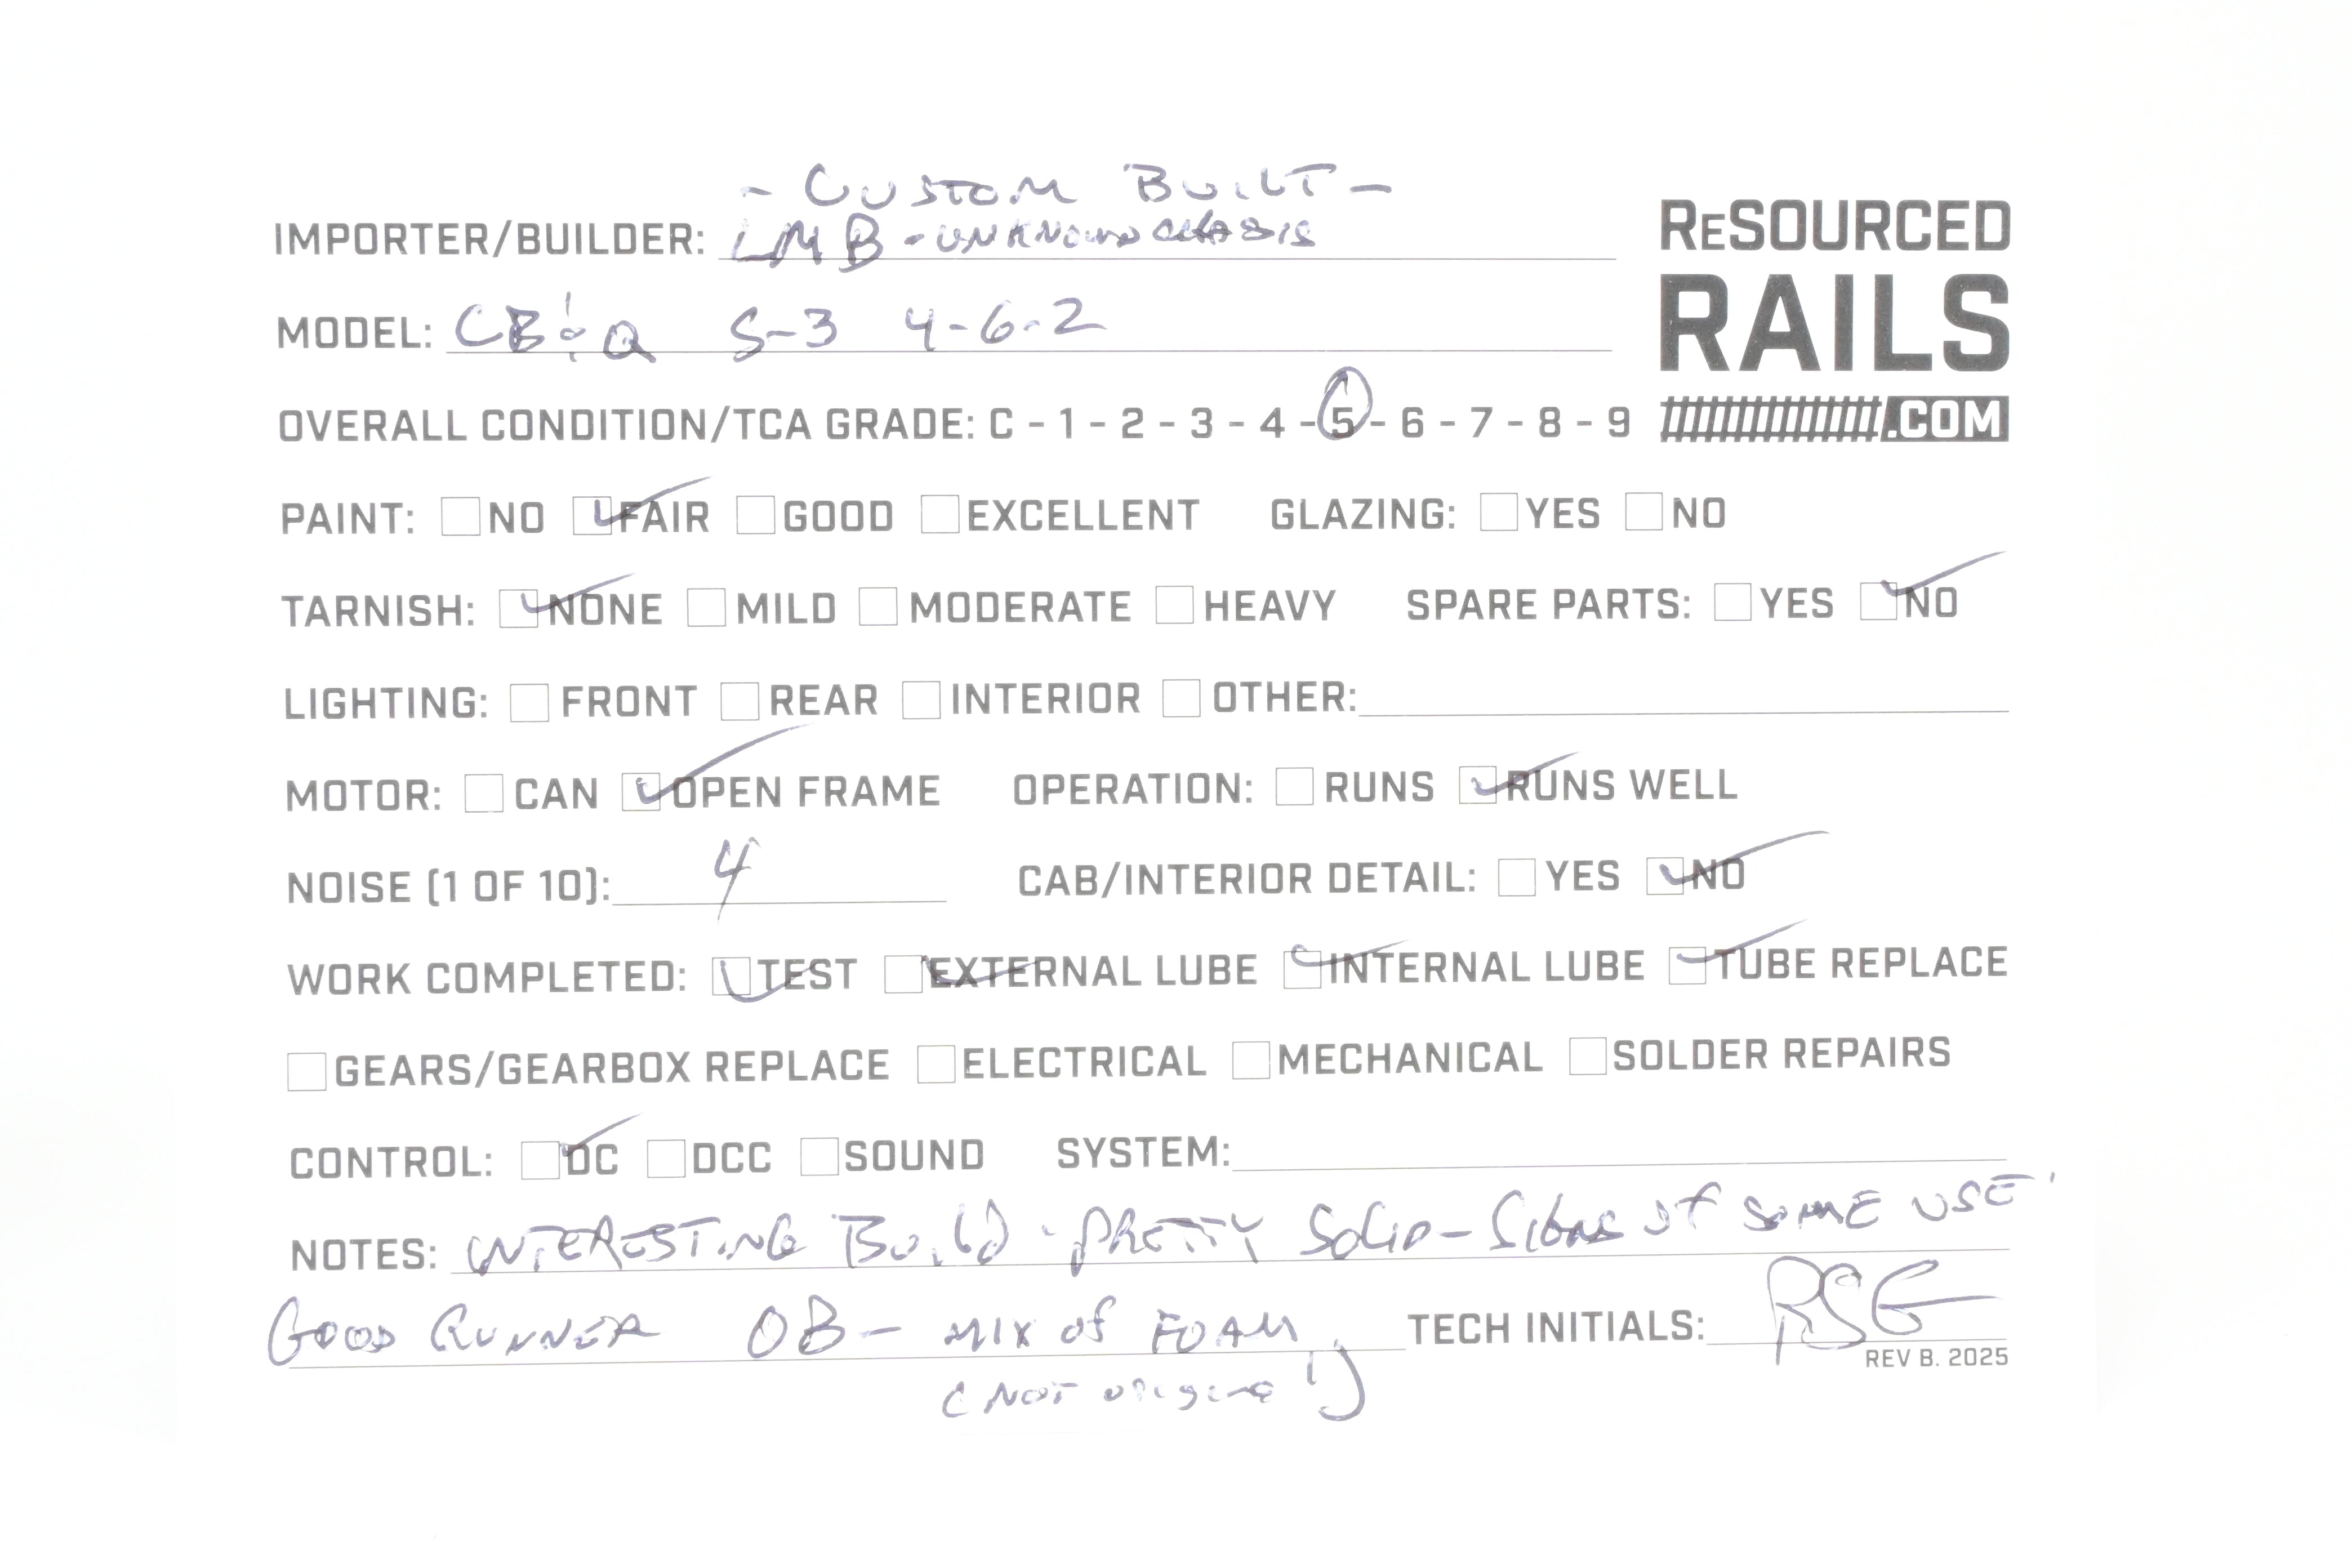 - CUSTOM BUILT -
IMPORTER/BUILDER: LMB - UNKNOWN CHASSIS
MODEL: CB&Q S-3 4-6-2
RESOURCED
RAILS
.COM
OVERALL CONDITION/TCA GRADE: C - 1 - 2 - 3 - 4 - 5 - 6 - 7 - 8 - 9
PAINT: NO FAIR GOOD EXCELLENT GLAZING: YES NO
TARNISH: NONE MILD MODERATE HEAVY SPARE PARTS: YES NO
LIGHTING: FRONT REAR INTERIOR OTHER:
MOTOR: CAN OPEN FRAME OPERATION: RUNS RUNS WELL
NOISE (1 OF 10): 4 CAB/INTERIOR DETAIL: YES NO
WORK COMPLETED: TEST EXTERNAL LUBE INTERNAL LUBE TUBE REPLACE
GEARS/GEARBOX REPLACE ELECTRICAL MECHANICAL SOLDER REPAIRS
CONTROL: DC DCC SOUND SYSTEM:
NOTES: INTERESTING Build - PRETTY SOLID - SIGNS OF SOME USE.
GOOD RUNNER OB - MIX OF FOAM, TECH INITIALS: RSG
REV B. 2025
(NOT original)